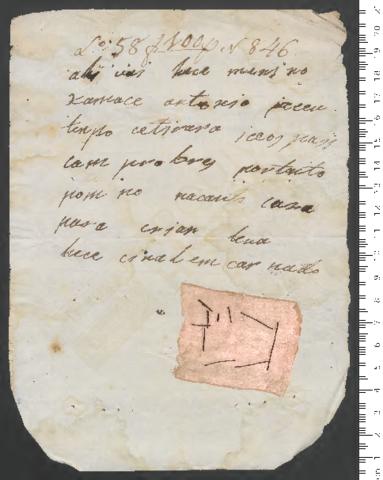 Lo 58 f 200 N 846
ahi vai hece meni no
xamace antonio
tinpo cetirara iceos pais
cam probres portanto
pom no nacanta caza
para criar leva
hece cinal em car nado